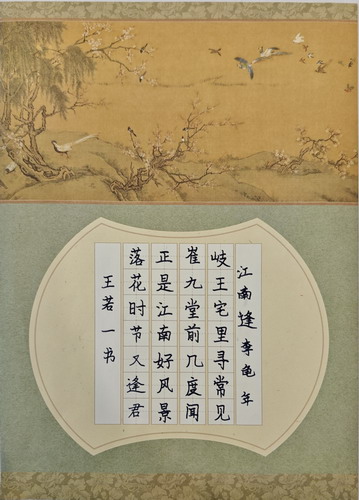 江南逢李龟年
岐王宅里寻常见
崔九堂前几度闻
正是江南好风景
落花时节又逢君
王若一书